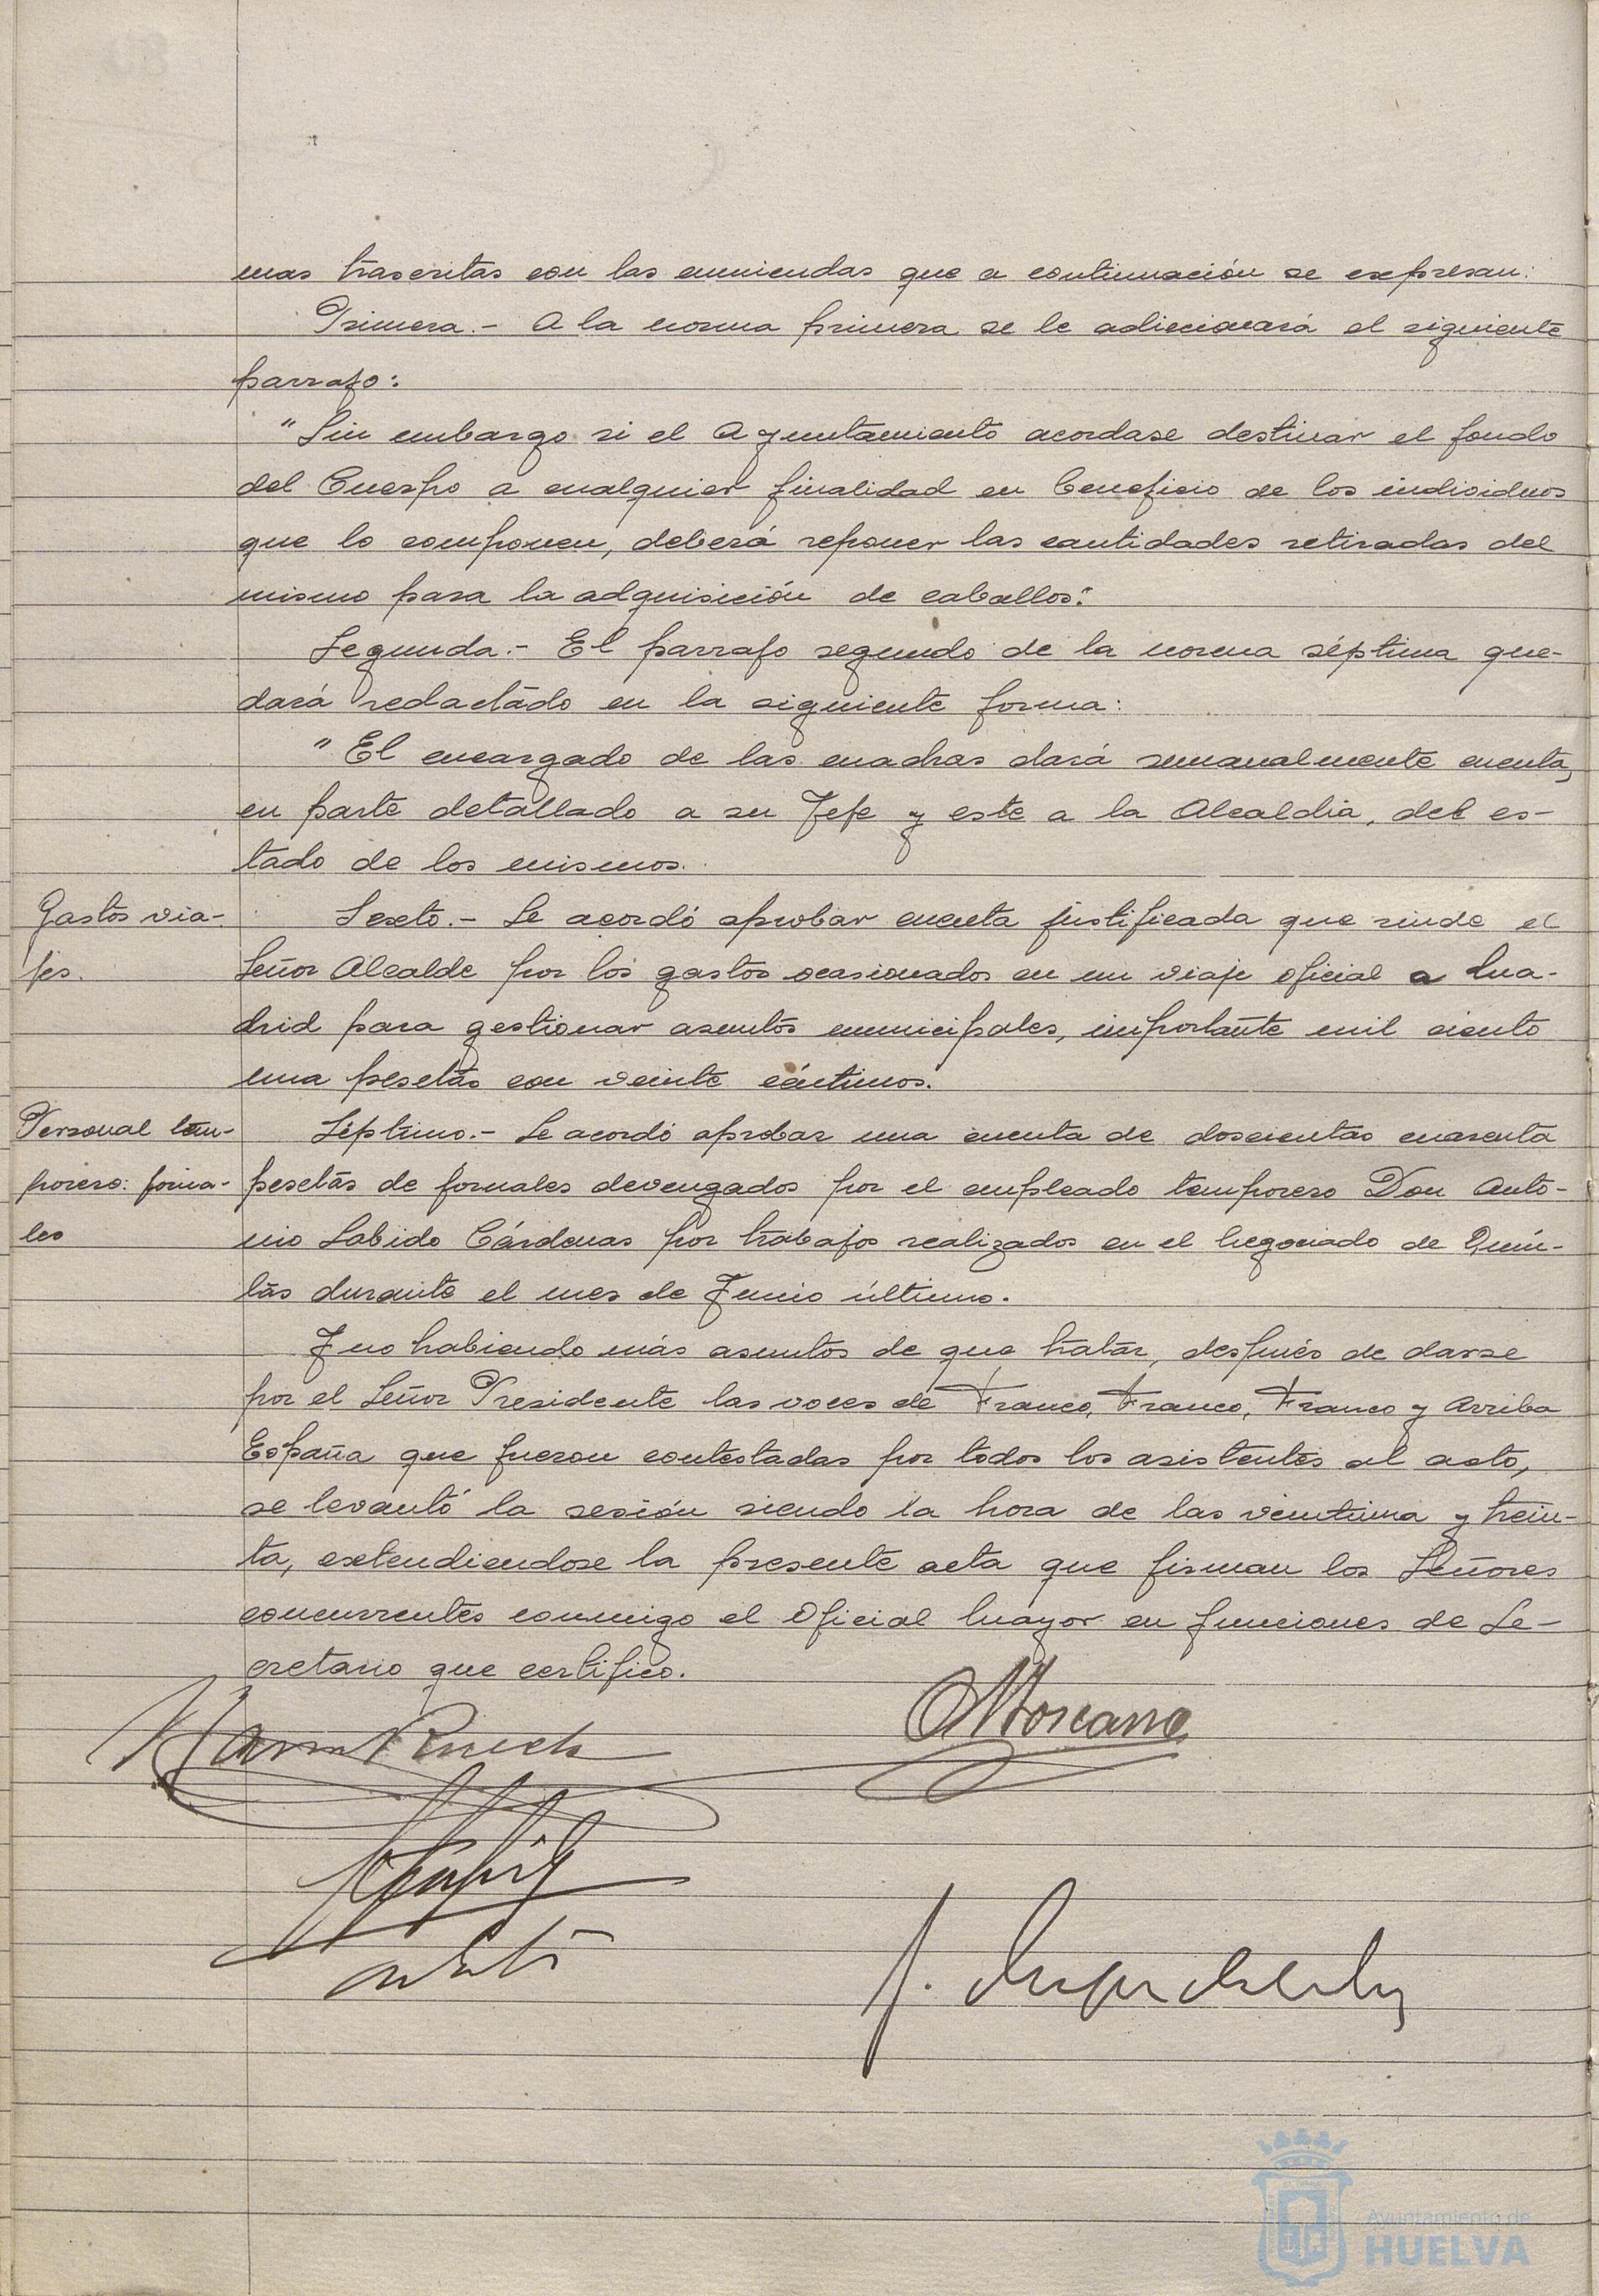 mas trascritas con las enmiendas que a continuación se expresan:
Primera.- A la norma primera se le adiecionará el siguiente
parrafo:
"Sin embargo si el Ayuntamiento acordase destinar el fondo
del Cuerpo a cualquier finalidad en beneficio de los individuos
que lo componen, deberá reponer las cantidades retiradas del
mismo para la adquisición de caballos."
Segunda.- El parrafo segundo de la norma séptima que-
dará redactado en la siguiente forma:
"El encargado de las cuadras dará semanalmente cuenta,
en parte detallado a su Jefe y este a la Alcaldia, del es-
tado de los mismos.
Gastos via-
jes.
Sexto.- Se acordó aprobar cuenta justificada que rinde el
Señor Alcalde por los gastos ocasionados en un viaje oficial a Ma-
drid para gestionar asuntos municipales, importante mil ciento
una pesetas con veinte céntimos.
Personal tem-
porero: jorna-
les
Séptimo.- Se acordó aprobar una cuenta de doscientas cuarenta
pesetas de jornales devengados por el empleado temporero Don Anto-
nio Sabido Cárdenas por trabajos realizados en el Negociado de Quin-
tas durante el mes de Junio último.
Y no habiendo más asuntos de que tratar, después de darse
por el Señor Presidente las voces de Franco, Franco, Franco y Arriba
España que fueron contestadas por todos los asistentes al acto,
se levantó la sesión siendo la hora de las veintiuna y trein-
ta, extendiendose la presente acta que firman los Señores
concurrentes conmigo el Oficial Mayor en funciones de Se-
cretario que certifico.
Ayuntamiento de
HUELVA